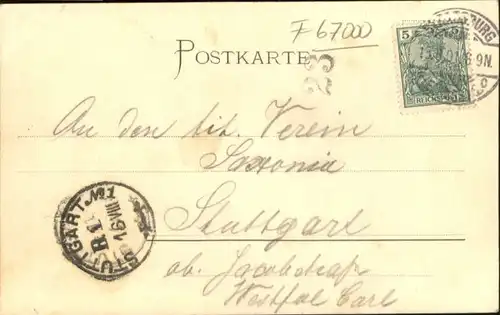 F 67000
POSTKARTE
23
5
REICHSPOST
BURG
6-9N.
An den lit. Verein
Saxonia
Stuttgart
ob. Jacobstraße
STUTTGART. No 1
16 VIII